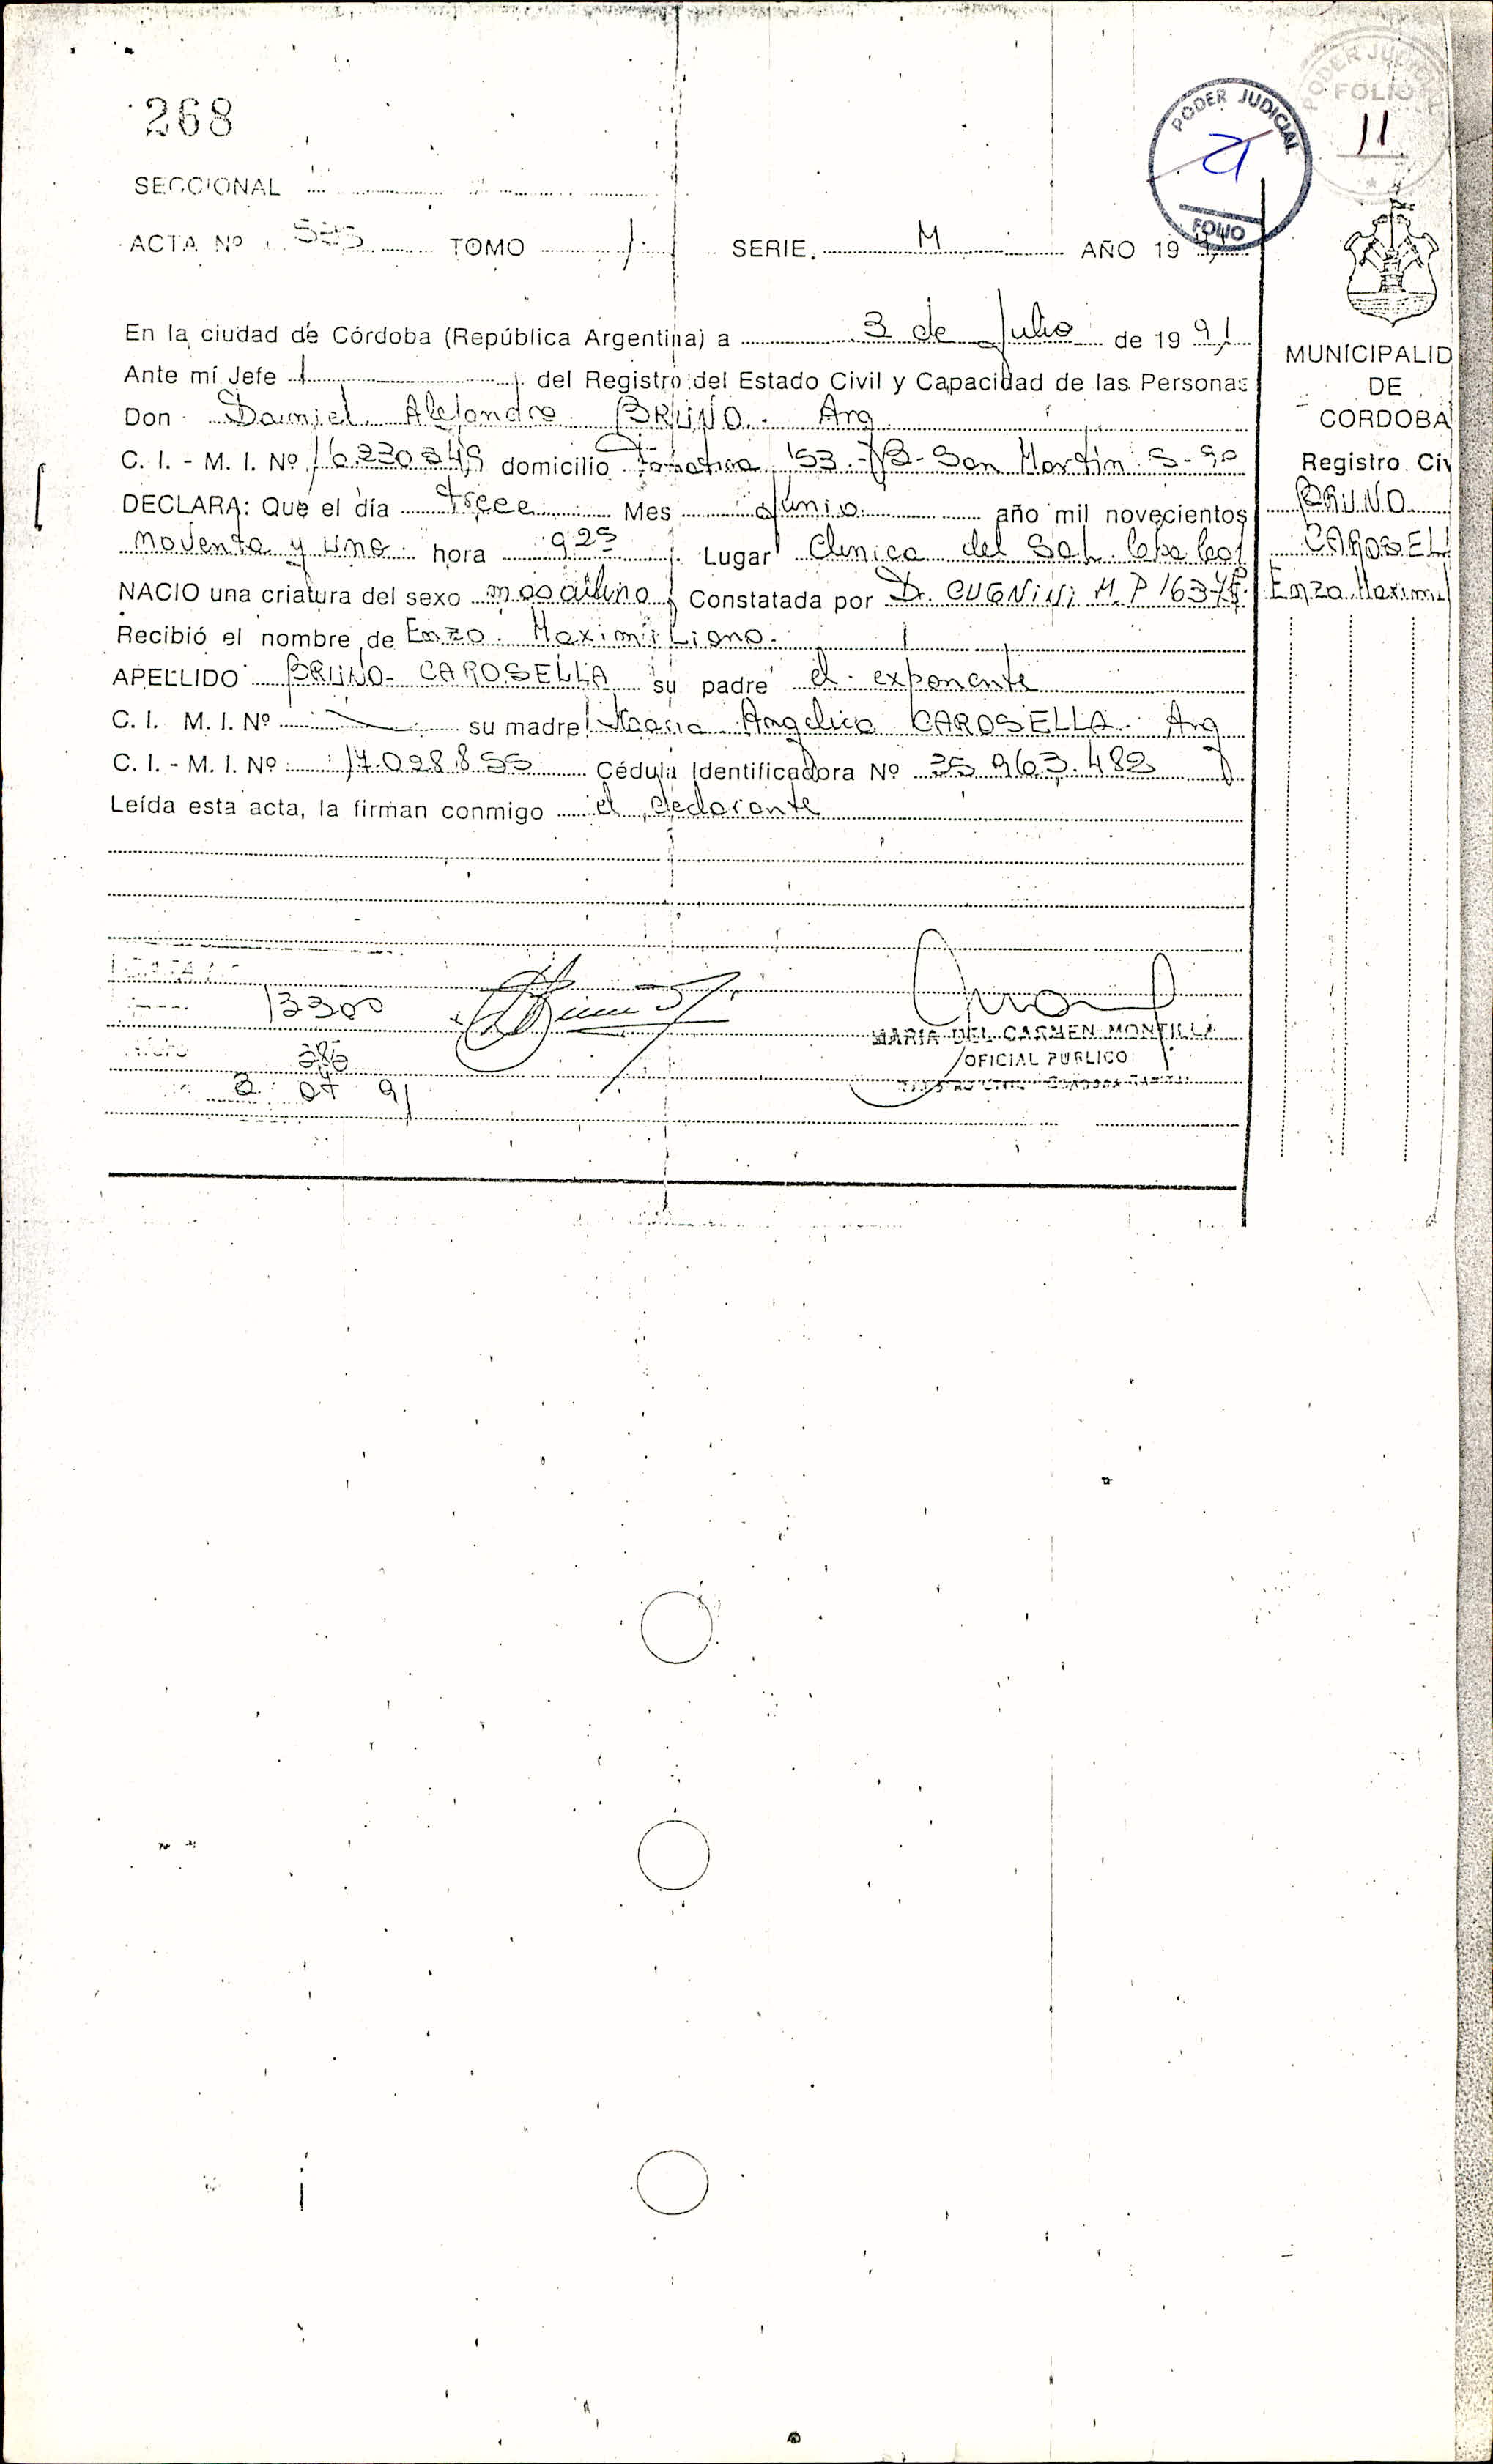 PODER JUDICIAL
FOLIO
11
268
PODER JUDICIAL
FOLIO
SECCIONAL
ACTA Nº TOMO 1 SERIE M AÑO 19
En la ciudad de Córdoba (República Argentina) a 3 de Julio de 19 91
Ante mí Jefe del Registro del Estado Civil y Capacidad de las Personas
Don Daniel Alejandro BRUNO. Arg
C. I. - M. I. Nº 16.230.349 domicilio 153 - Bº San Martin
DECLARA: Que el día trece Mes Junio año mil novecientos
noventa y uno hora 9 25 Lugar Clinica del Sol
NACIO una criatura del sexo masculino Constatada por Dr. CUGNINI M.P
Recibió el nombre de Enzo Maximiliano.
APELLIDO BRUNO - CAROSELLA su padre el exponente
C. I. M. I. Nº su madre Maria Angelica CAROSELLA. Arg
C. I. - M. I. Nº 17.028.855 Cédula Identificadora Nº 35 963.482
Leída esta acta, la firman conmigo el declarante
13300
MARIA DEL CARMEN MONTILLA
OFICIAL PUBLICO
07 91
MUNICIPALID
DE
CORDOBA
Registro Civ
BRUNO
CAROSELL
Enzo Maximil